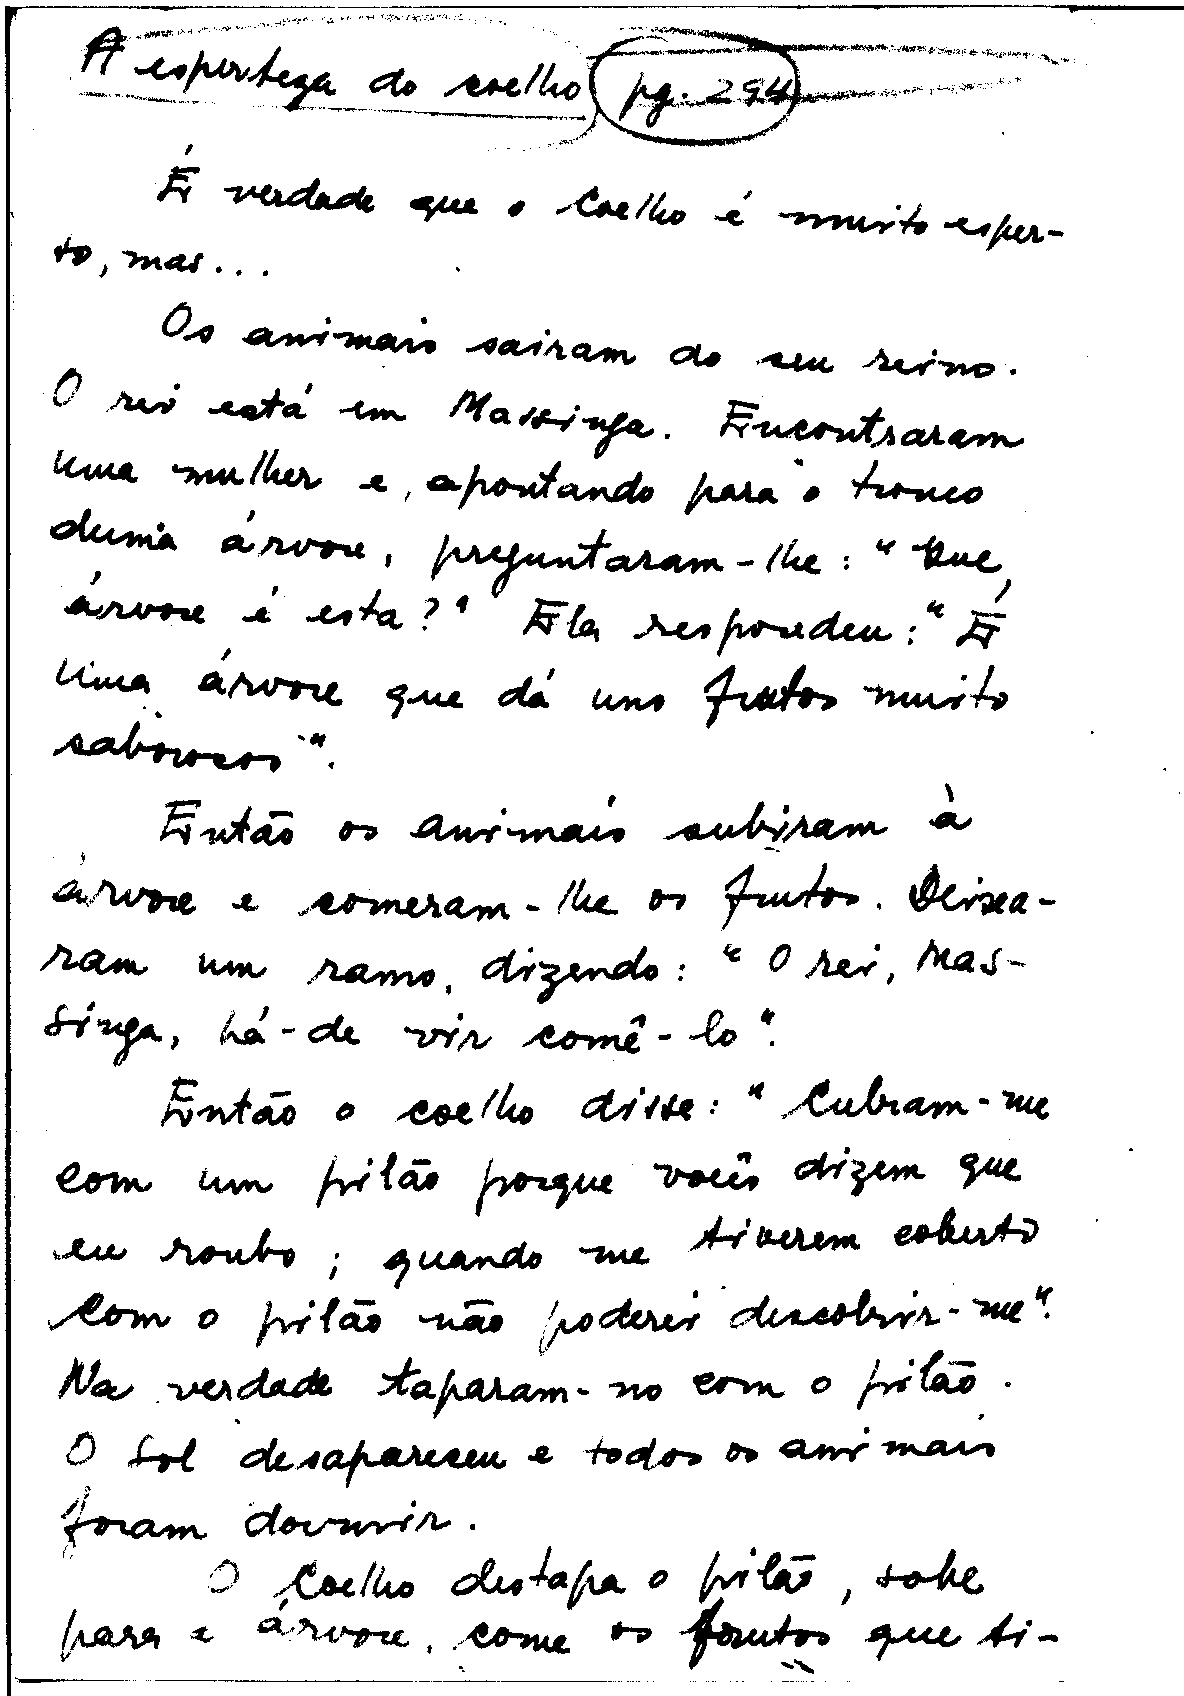 A esperteza do coelho pg. 294
É verdade que o Coelho é muito esper-
to, mas...
Os animais sairam do seu reino.
O rei está em Massinga. Encontraram
uma mulher e, apontando para o tronco
duma árvore, preguntaram-lhe: "Que
árvore é esta?" Ela respondeu: "É
uma árvore que dá uns frutos muito
saborosos".
Então os animais subiram à
árvore e comeram-lhe os frutos. Deixa-
ram um ramo, dizendo: "O rei, Mas-
singa, há-de vir comê-lo".
Então o coelho disse: "Cubram-me
com um pilão porque vocês dizem que
eu roubo; quando me tiverem coberto
com o pilão não poderei descobrir-me".
Na verdade taparam-no com o pilão.
O Sol desapareceu e todos os animais
foram dormir.
O Coelho destapa o pilão, sobe
para a árvore, come os frutos que ti-